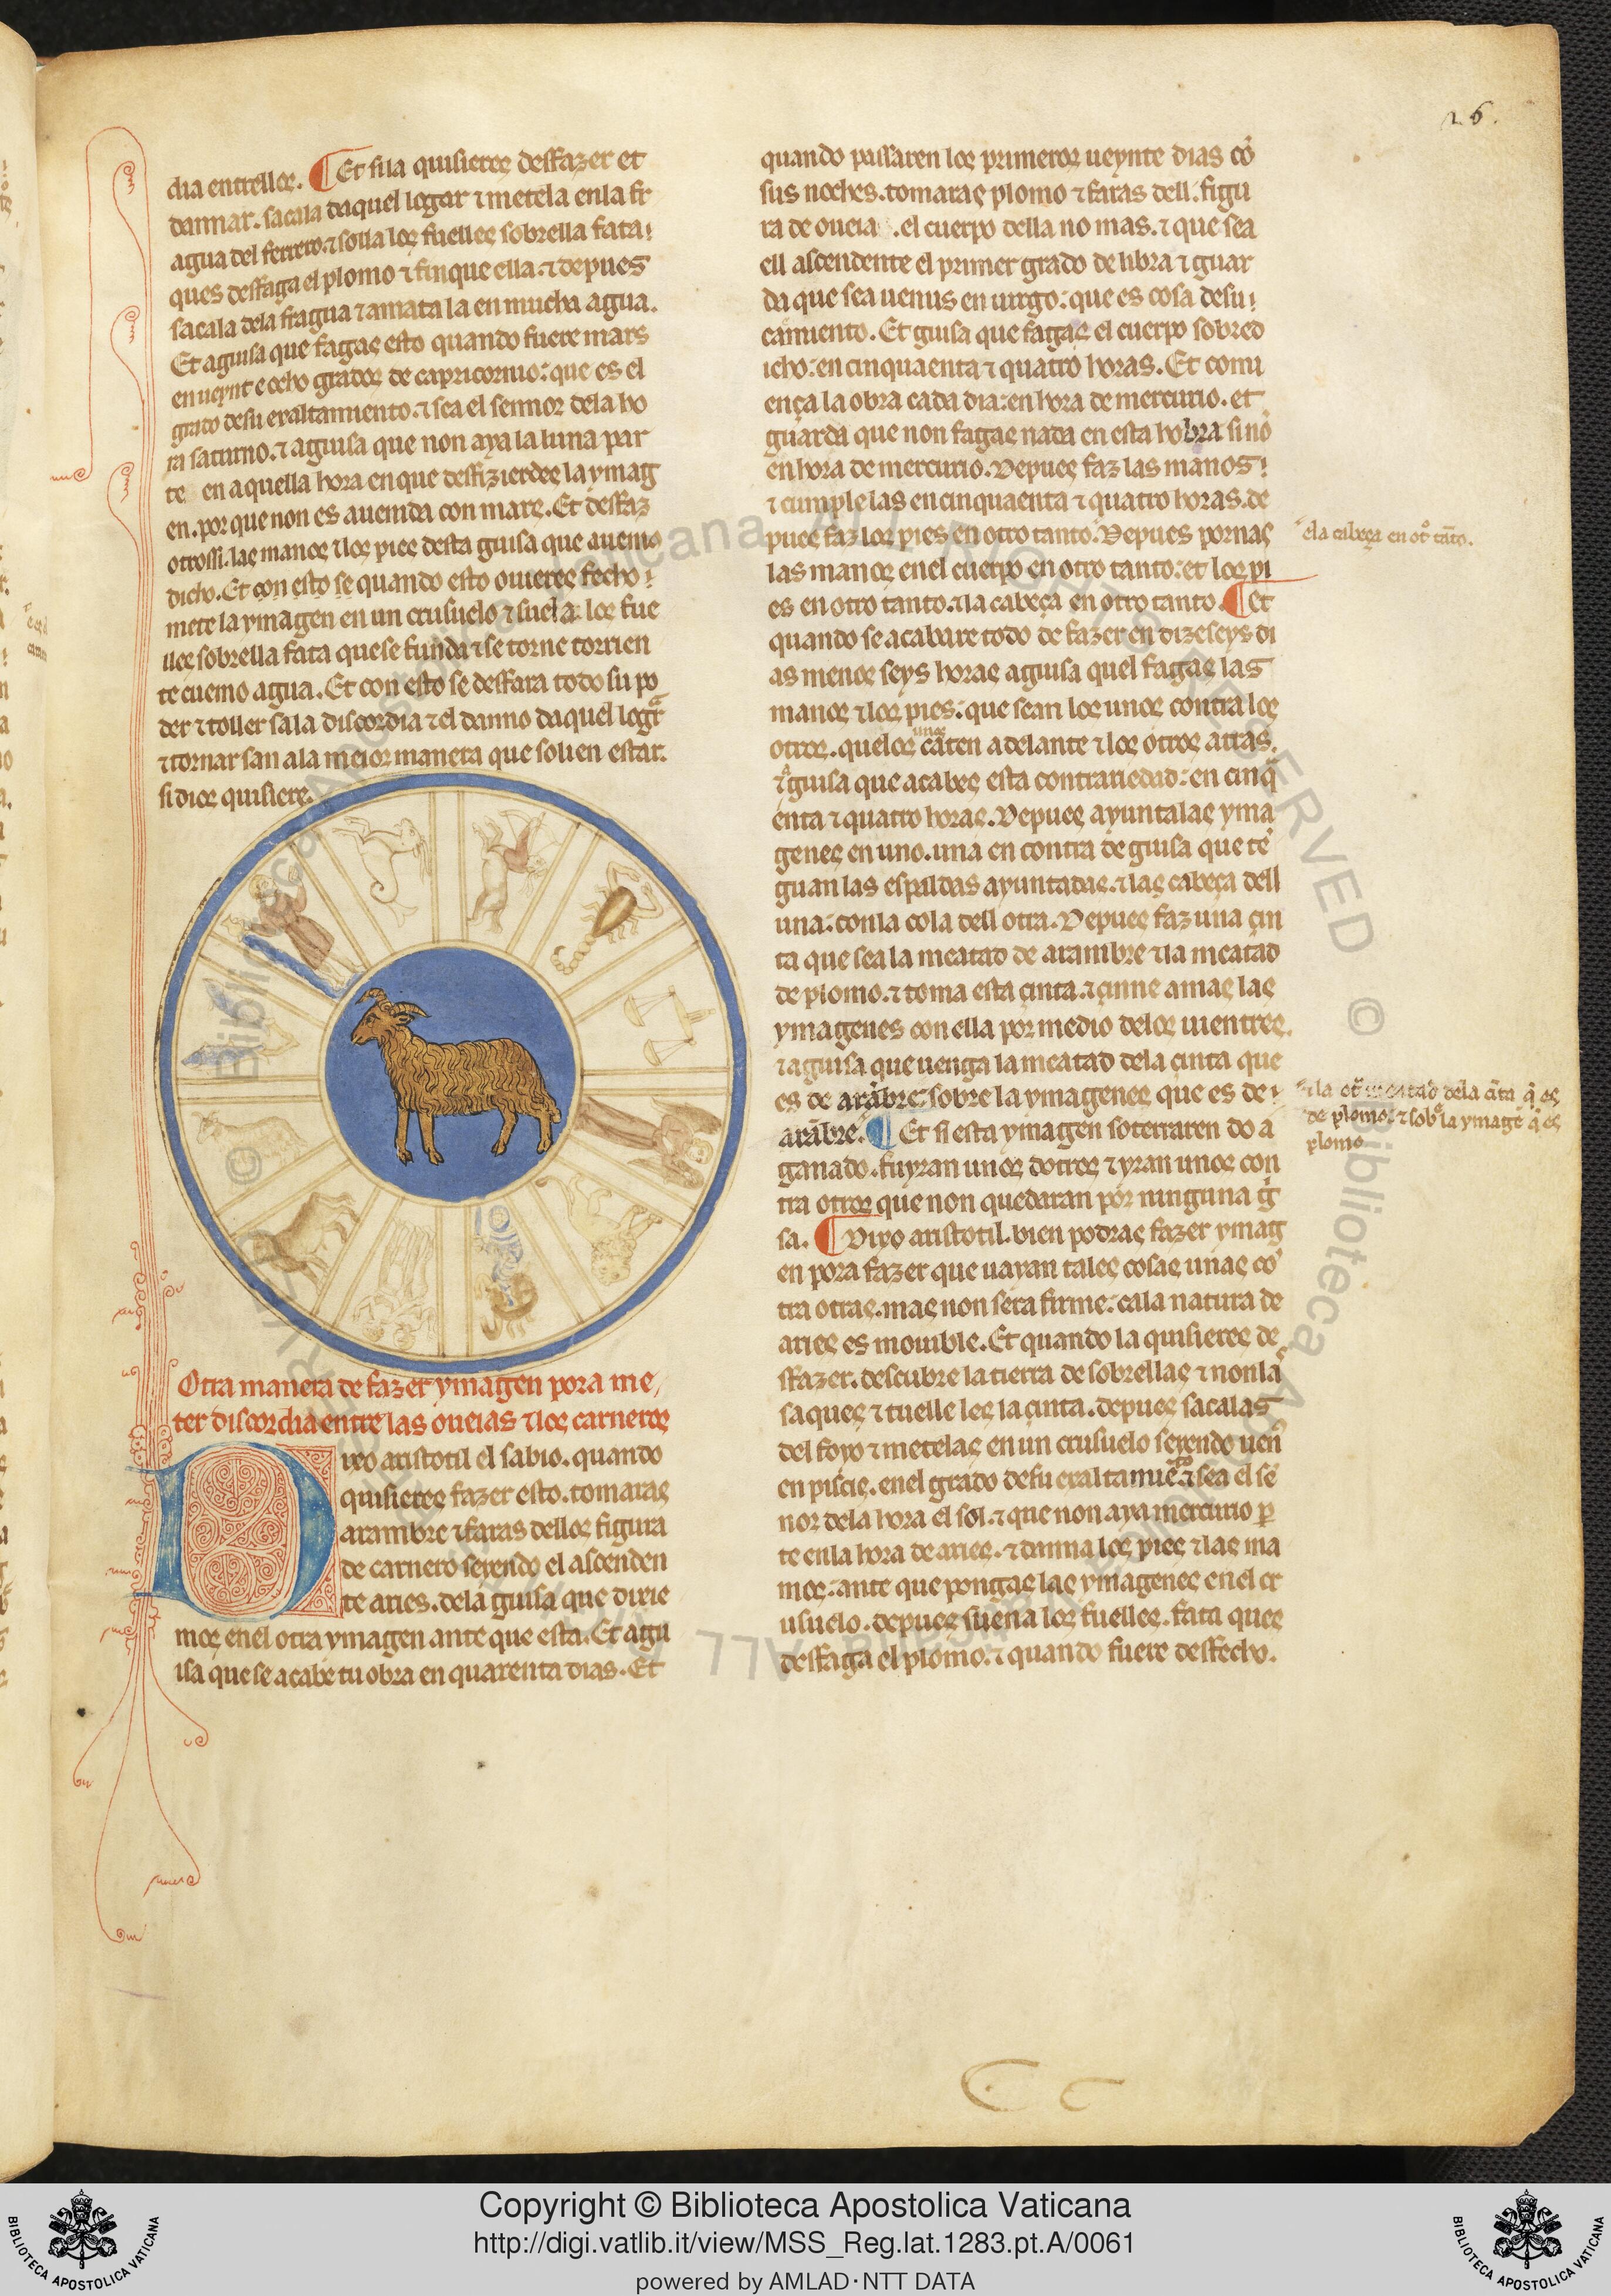 26.
dia entrellos. ¶ Et si la quisieres desfazer et
dannar. sacala daquel logar ⁊ metela en la fr
agua del ferrero. ⁊ solla los fuelles sobrella fata
ques desfaga el plomo ⁊ finque ella. ⁊ depues
sacala dela fragua ⁊ amatala en mucha agua.
Et aguisa que fagas esto quando fuere mars
en ueynt e ocho grados de capricornio: que es el
grado desu exaltamiento. ⁊ sea el sennor dela ho
ra saturno. ⁊ aguisa que non aya la luna par
te en aquella hora en que desfizierdes la ymag
en. por que non es auenida con mars. Et desfaz
otrossi. las manos ⁊ los pies desta guisa que auemos
dicho. Et con esto se quando esto ouieres fecho
mete la ymagen en un crusuelo ⁊ suela los fue
lles sobrella fata que se funda ⁊ se torne corrien
te cuemo agua. Et con esto se desfara todo su po
der ⁊ toller sa la discordia ⁊ el danno daquel logar
⁊ tornar san ala meior manera que solien estar.
si dios quisiere.
Otra manera de fazer ymagen pora me
ter discordia entre las oueias ⁊ los carneros
Dixo aristotil el sabio. quando
quisieres fazer esto. tomaras
arambre ⁊ faras dellos figura
de carnero seyendo el ascenden
te aries. dela guisa que dixie
mos enel otra ymagen ante que esta. Et agu
isa que se acabe tu obra en quarenta dias. Et
quando passaren los primeros ueynte dias cō
sus noches. tomaras plomo ⁊ faras dell. figu
ra de oueia .el cuerpo della no mas. ⁊ que sea
ell ascendente el primer grado de libra ⁊ guar
da que sea uenus en uirgo: que es cosa desu
camiento. Et guisa que fagas el cuerpo sobred
icho: en cinquaenta ⁊ quatro horas. Et comi
ença la obra cada dia: en hora de mercurio. et
guarda que non fagas nada en esta hobra sinō
en hora de mercurio. Depues faz las manos
⁊ cumple las en cinquaenta ⁊ quatro horas. de
pues faz los pies en otro tanto. Depues pornas
las manos enel cuerpo en otro tanto: et los pi
es en otro tanto. ⁊ la cabeça en otro tanto. ¶ Et
quando se acabare todo de fazer en dizeseys di
as menos seys horas aguisa quel fagas las
manos ⁊ los pies: que sean los unos contra los
otros. que los unos cāten adelante ⁊ los otros atras.
⁊ guisa que acabes esta contrariedad: en cinq̃
enta ⁊ quatro horas. Depues ayunta las yma
genes en uno. una en contra de guisa que tē
guan las espaldas ayuntadas. ⁊ las cabeça dell
una: con la cola dell otra. Depues faz una çin
ta que sea la meatad de arambre ⁊ la meatad
de plomo. ⁊ toma esta çinta. ⁊ çinne amas las
ymagenes con ella por medio delos uientres.
⁊ aguisa que uenga la meatad dela çinta que
es de arābre: sobre la ymagenes que es de
arābre. ¶ Et si esta ymagen soterraren do a
ganado. fuyran unos dotros ⁊ yran unos con
tra otros que non quedaran por ninguna g̃
sa. ¶ Dixo aristotil. bien podras fazer ymag
en pora fazer que uayan tales cosas unas cō
tra otras. mas non sera firme: ca la natura de
aries es mouible. Et quando la quisieres de
sfazer. descubre la tierra de sobrellas ⁊ non las
saques ⁊ tuelle les la çinta. depues sacalas
del foyo ⁊ metelas en un crusuelo seyendo uen9
en piscis. enel grado desu exaltamiēto. ⁊ sea el sē
nor dela hora el sol. ⁊ que non aya mercurio ꝑ
te enla hora de aries. ⁊ danna los pies ⁊ las ma
nos: ante que pongas las ymagenes enel cr
usuelo. depues suena los fuelles. fata ques
desfaga el plomo. ⁊ quando fuere desfecho.
⁊ la cabeça en otº tāto.
⁊ la otª meatad dela çīta q̃ es
de plomo. ⁊ sobº la ymagē q̃ es
plomo
Copyright © Biblioteca Apostolica Vaticana
http://digi.vatlib.it/view/MSS_Reg.lat.1283.pt.A/0061
powered by AMLAD·NTT DATA
BIBLIOTECA APOSTOLICA VATICANA
BIBLIOTECA APOSTOLICA VATICANA